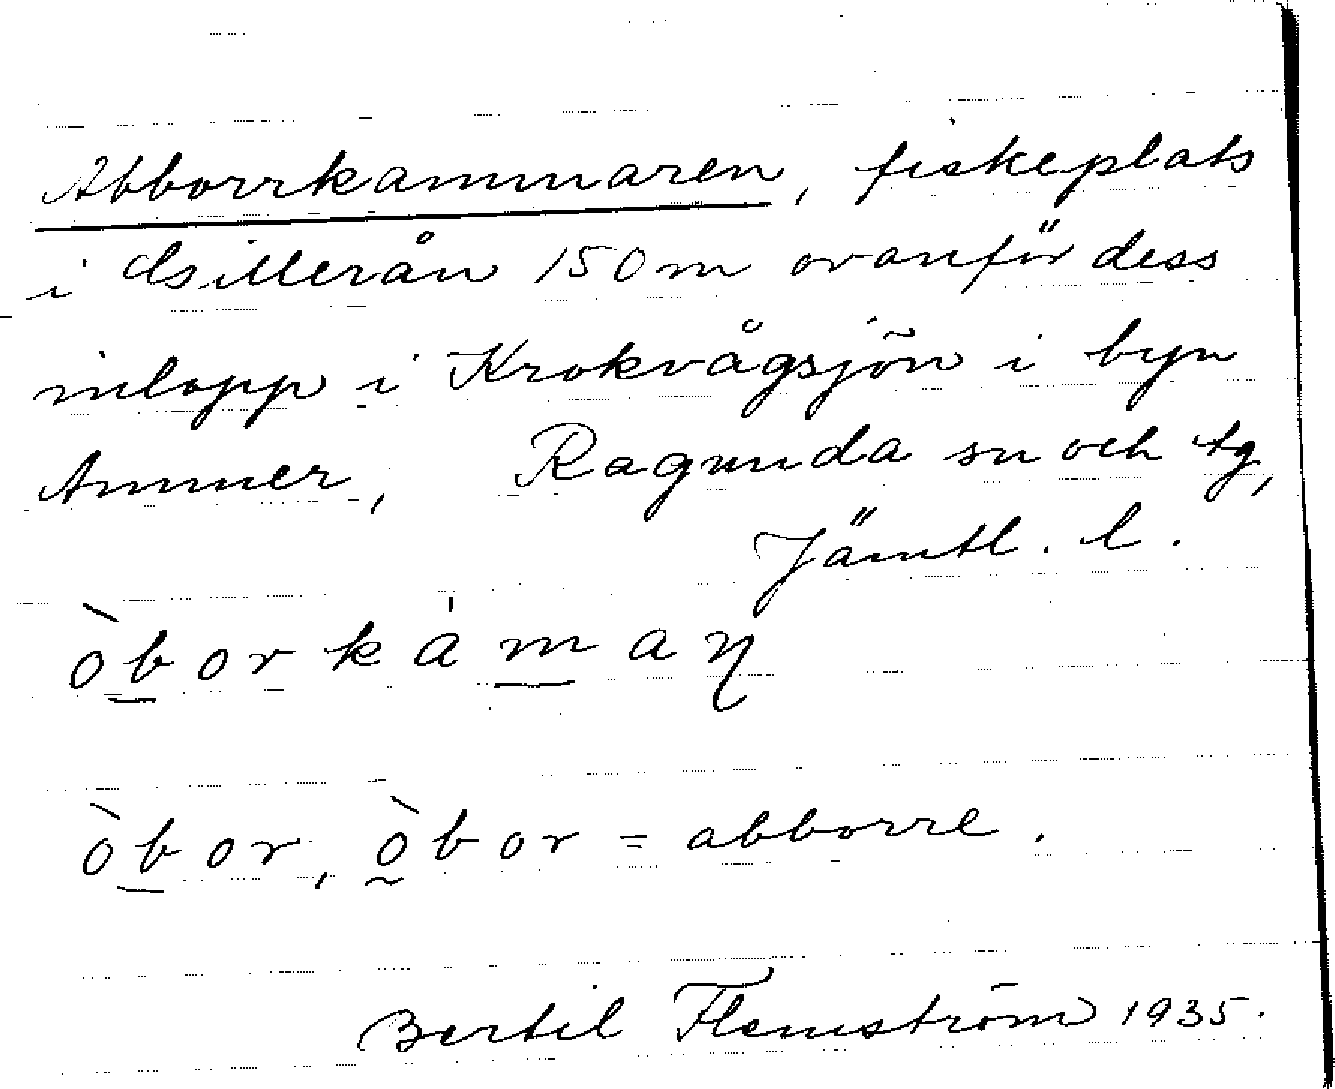 Abborrkammaren, fiskeplats
i Gsillerån 150 m ovanför dess
inlopp i Krokvågsjön i byn
Ammer, Ragunda sn och tg,
Jämtl. l.
òborkámaŋ
òbor, òbor = abborre.
Bertil Flemström 1935.